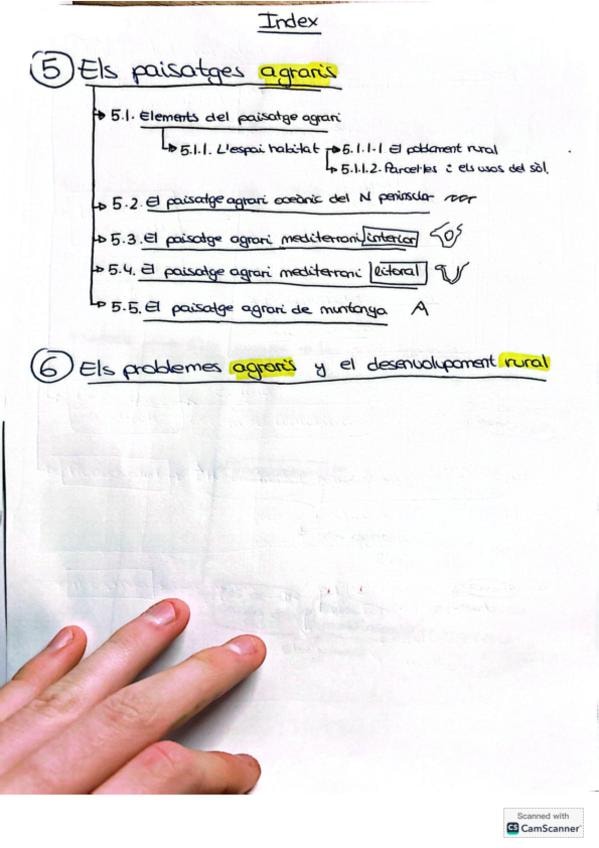 Index
5 Els paisatges agraris
5.1. Elements del paisatge agrari
5.1.1. L'espai habitat
5.1.1.1 El poblament rural
5.1.1.2. Parcel·les i els usos del sòl.
5.2. El paisatge agrari oceànic del N peninsular
5.3. El paisatge agrari mediterrani interior
5.4. El paisatge agrari mediterrani litoral
5.5. El paisatge agrari de muntanya
6 Els problemes agraris y el desenvolupament rural
Scanned with
CS CamScanner